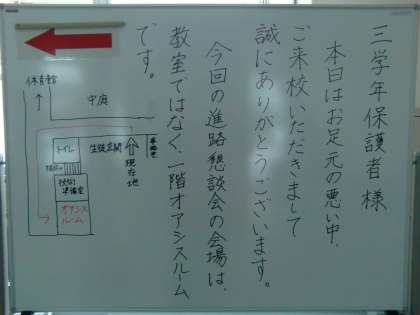 三学年保護者様
本日はお足元の悪い中、
ご来校いただきまして
誠にありがとうございます。
今回の進路懇談会の会場は、
教室ではなく、一階オアシスルーム
です。
体育館
中庭
トイレ
生徒玄関
現在地
事務室
階段
技術
準備室
オアシス
ルーム